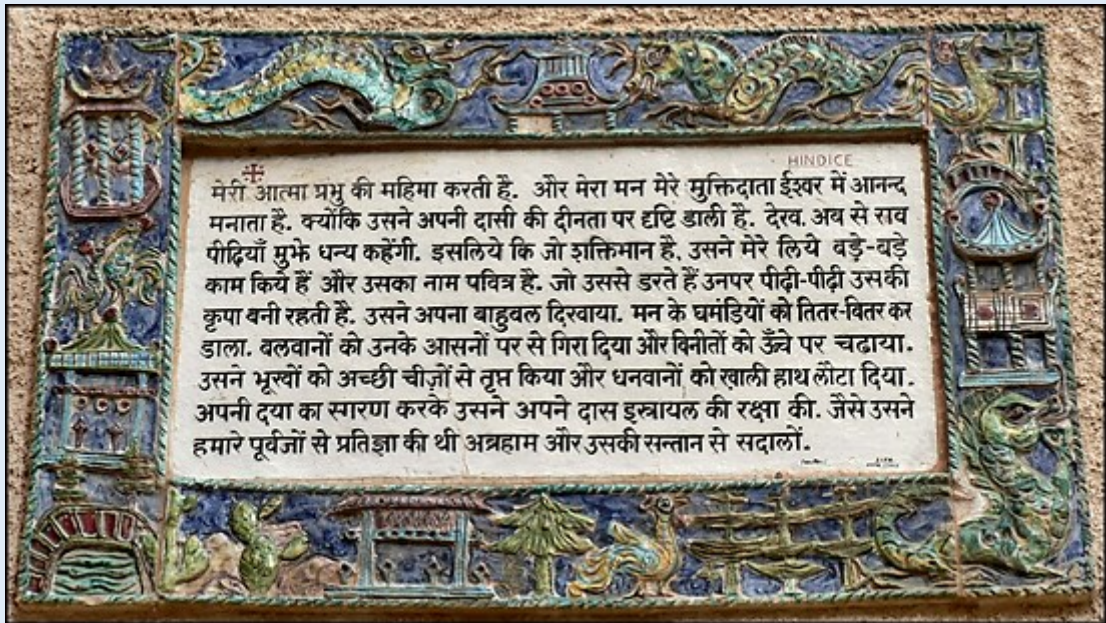 HINDICE
मेरी आत्मा प्रभु की महिमा करती है. और मेरा मन मेरे मुक्तिदाता ईश्वर में आनन्द
मनाता है. क्योंकि उसने अपनी दासी की दीनता पर दृष्टि डाली है. देरव, अब से सब
पीढ़ियाँ मुझे धन्य कहेंगी. इसलिये कि जो शक्तिमान है, उसने मेरे लिये बड़े-बड़े
काम किये हैं और उसका नाम पवित्र है. जो उससे डरते हैं उनपर पीढ़ी-पीढ़ी उसकी
कृपा बनी रहती है. उसने अपना बाहुबल दिरवाया. मन के घमंडियों को तितर-बितर कर
डाला. बलवानों को उनके आसनों पर से गिरा दिया और विनीतों को ऊँचे पर चढाया.
उसने भूखों को अच्छी चीज़ों से तृप्त किया और धनवानों को ख़ाली हाथ लौटा दिया.
अपनी दया का स्मरण करके उसने अपने दास इस्त्रायल की रक्षा की. जैसे उसने
हमारे पूर्वजों से प्रतिज्ञा की थी अब्रहाम और उसकी सन्तान से सदालों.